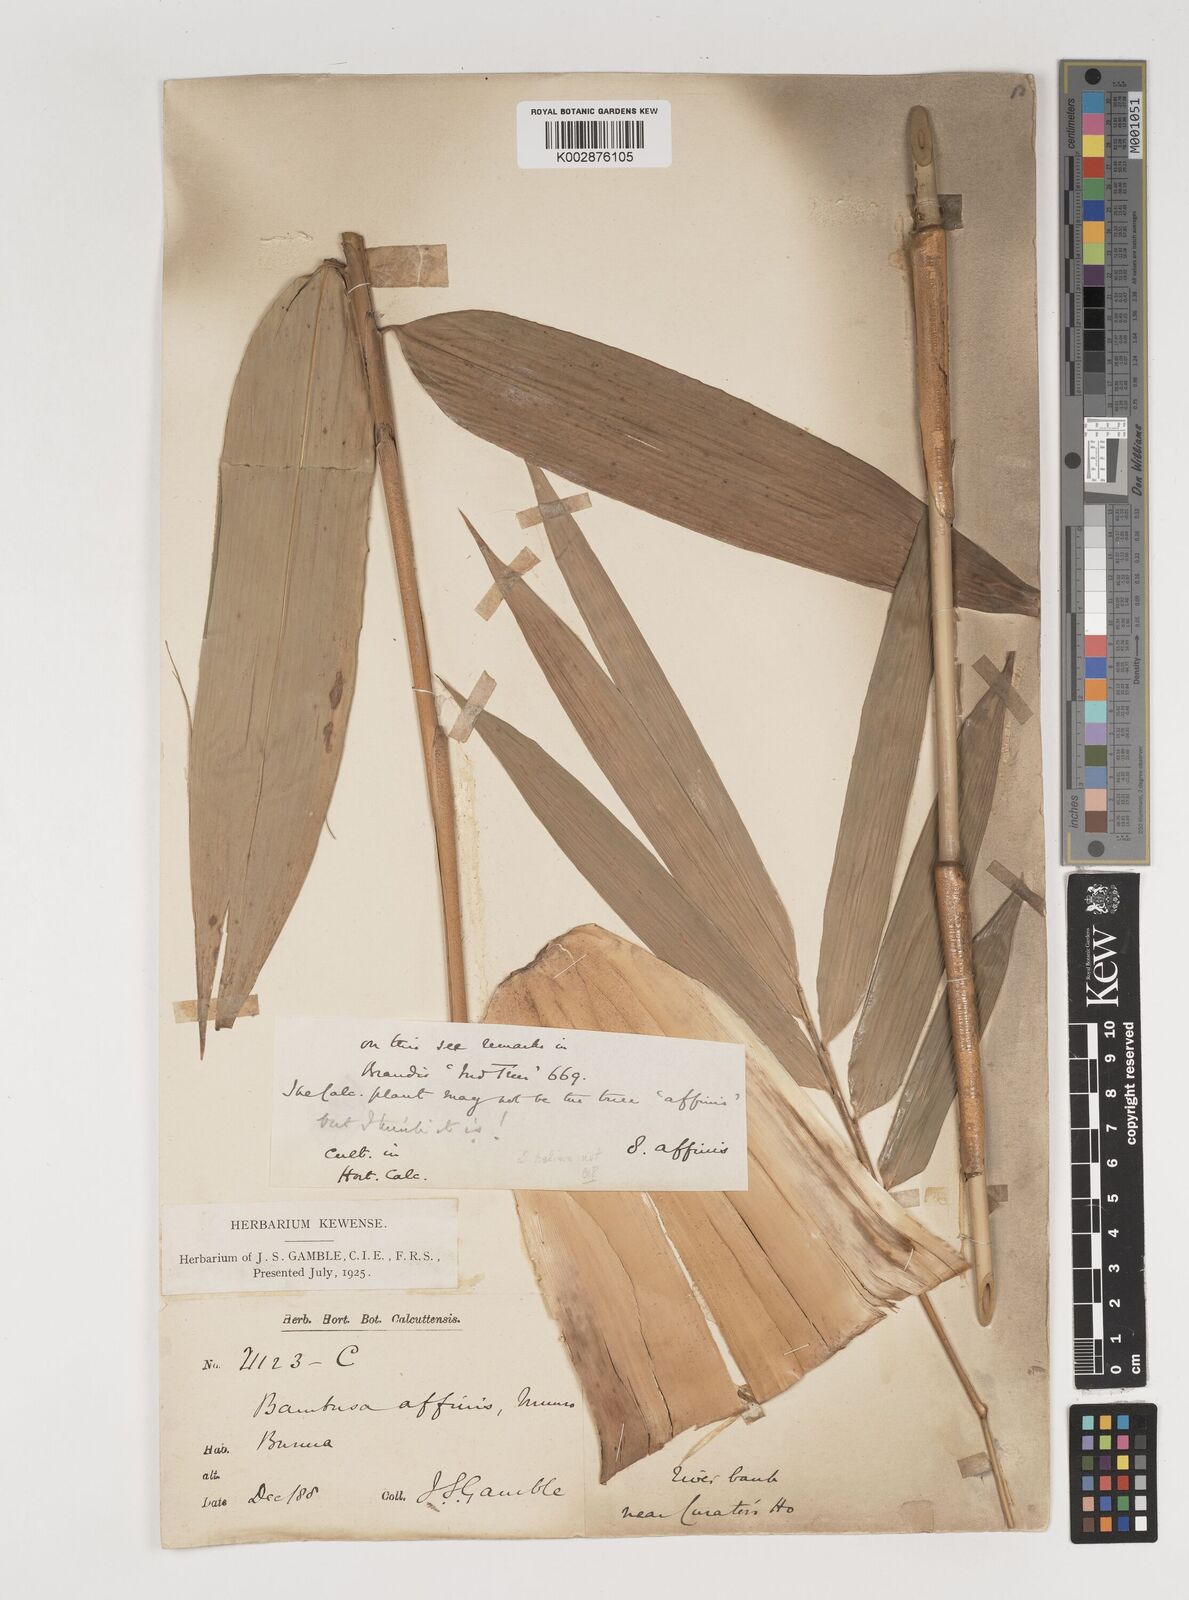 ROYAL BOTANIC GARDENS KEW
K002876105
on this see remarks in
Brandis 'Ind Trees' 669.
The Calc. plant may not be the true 'affinis'
but I think it is!
8. affinis
Cult. in
Hort. Calc.
HERBARIUM KEWENSE.
Herbarium of J. S. GAMBLE, C.I.E., F.R.S.,
Presented July, 1925.
Herb. Hort. Bot. Calcuttensis.
No. 21123 - C
Bambusa affinis, Munro
Hab. Burma
alt.
Date Dec/88 Coll. J.S.Gamble
River bank
near Curator's Ho
centimeters
M001051
Don Williams
Density
inches
Royal Botanic Gardens
Kew
0 1 2 3 4 5 6 7 8 9 10
cm
copyright reserved